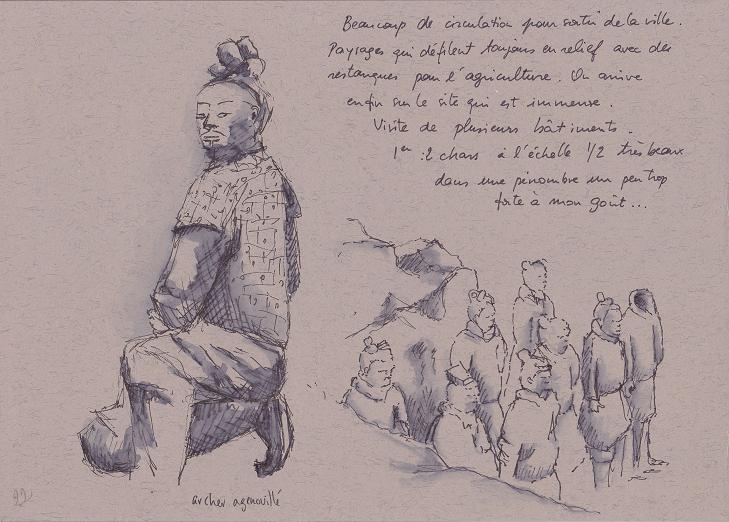 Beaucoup de circulation pour sortir de la ville.
Paysages qui défilent toujours en relief avec des
restanques pour l'agriculture. On arrive
enfin sur le site qui est immense.
Visite de plusieurs bâtiments.
1er : 2 chars à l'échelle 1/2 très beaux
dans une pénombre un peu trop
forte à mon goût...
archer agenouillé